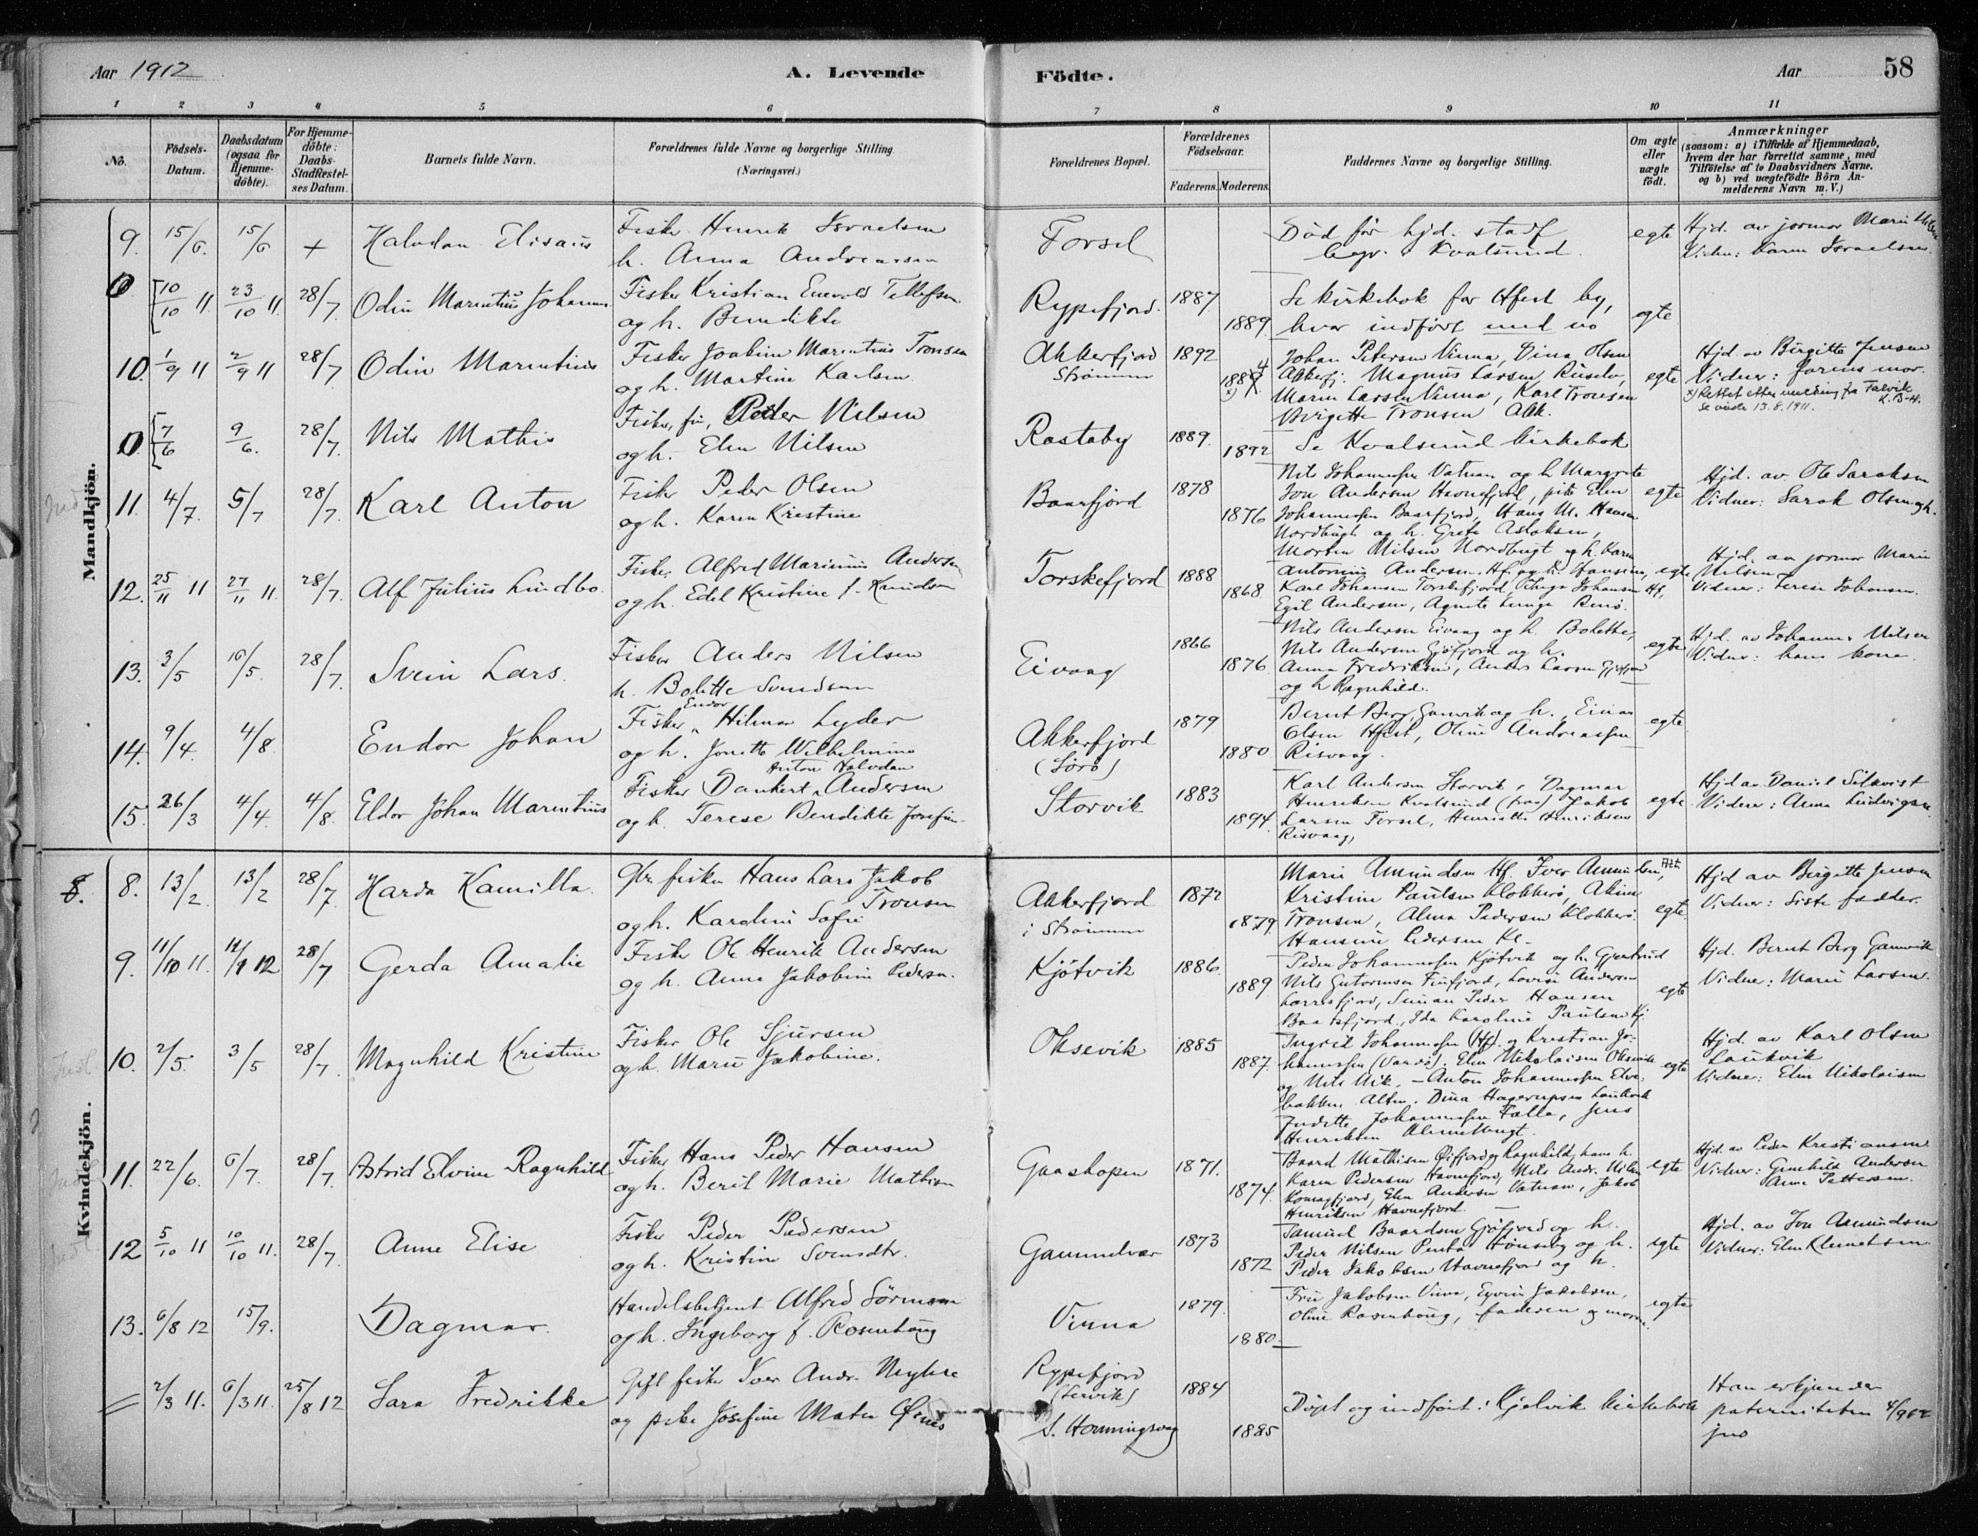 Aar 1912 A. Levende Födte. Aar 58
1 2 3 4 5 6 7 8 9 10 11
No. Födsels-Datum. Daabsdatum (ogsaa for Hjemme-döbte). For Hjemme-döbte: Daabs-Stadfestel-ses Datum. Barnets fulde Navn. Forældrenes fulde Navne og borgerlige Stilling (Næringsvei.) Forældrenes Bopæl. Forældrenes Födselsaar. Faderens. Moderens. Faddernes Navne og borgerlige Stilling. Om ægte eller uægte födt. Anmærkninger (saasom: a) i Tilfælde af Hjemmedaab, hvem der har forrettet samme, med Tilföielse af to Daabsvidners Navne. og b) ved uægtefödte Börn An-melderens Navn m. V.)
Mandkjön.
9. 15/6. 15/6 + Halvdan Elisæus Fisker Henrik Israelsen
h. Anna Andreassen
Forsøl Død før hjd. stadf.
Begr. i Kvalsund. egte Hjd. av jormor Marie Nilsen
Vidner: Karen Israelsen.
0 10/10 11. 23/10 11. 28/7. Odin Marentius Johannes Fisker Kristian Enevold Tellefsen
og h. Bendikte
Rypefjord. 1887 1889 Se kirkebok for Hfest by,
hvor indført med no egte
10. 1/9 11 2/9 11 28/7 Odin Marentius Fisker Joakim Marentius Tronsen
og h. Martine Karlsen
Akkerfjord
Strømmen 1892 Johan Petersen Vinna, Dina Olsen
Akkefj. Magnus Larsen
Maren Larsen Vinna, Karl Tronsen
Birgitte Tronsen Akk. egte Hjd. av Birgitte Jensen
Vidner: farens mor.
x) Rettet efter melding fra Talvik
0. 7/6 9/6. 28/7. Nils Mathis Fisker, fin, Peder Nilsen
og h. Elen Nilsen
Rastaby 1889. 1892 Se Kvalsund kirkebok
11. 4/7. 5/7 28/7. Karl Anton Fisker Peder Olsen
og h. Karen Kristine
Baarfjord 1878 1876 Nils Johannesen Vatnan og h. Margrete
Jon Andersen Havnefjord, pike Elen
Johannesen Baarfjord, Hans M. Hansen
Nordbugt og h. Grete Aslaksen,
Morten Nilsen Nordbugt og h. Karen egte Hjd. av Ole Saraksen
Vidner: Sarak Olsen og h.
12. 25/11 11 27/11 11. 28/7. Alf Julius Lindbo. Fisker Alfred Marinius Andersen
og h. Edel Kristine f. Knudsen
Torskefjord 1888 1868 Andersen Hf. og h. Hansine,
Karl Johansen Torskefjord, Johansen Hf,
Egil Andersen, Agnete egte Hjd. av jormor Marie
Nilsen
Vidner: Terese Johansen.
13. 3/5 16/5. 28/7. Svein Lars. Fisker Anders Nilsen
h. Bolette Svendsen
Eivaag 1866 1876 Nils Andersen Eivaag og h. Bolette,
Nils Andersen Gjøfjord og h.
Anna Fredriksen, Anders Larsen
og h Ragnhild. egte Hjd. av Johannes Nilsen
Vidner: hans kone
14. 9/4. 4/8. Endor Johan Fisker Endor Hilmar Lyder
og h. Jonette Wilhelmine
Akkerfjord
(Sørø) 1879 1880 Bernt Berg, Gamvik og h., Einar
Olsen Hfest, Oline Andreassen
Risvaag. egte
15. 26/3 4/4. 4/8. Eldor Johan Marentius Fisker Dankert Anton Halvdan Andersen
og h. Terese Bendikte Josefine
Storvik 1883 1894. Karl Andersen Storvik, Dagmar
Henriksen Kvalsund Jakob
Larsen Forsøl, Henriette Henriksen
Risvaag, egte Hjd av Daniel Silkvist
Vidner: Anna Ludvigsen.
Kvindekjön.
8. 8. 13/2. 13/2 28/7 Harda Kamilla. Gbr. fisker Hans Lars Jakob
Tronsen
og h. Karoline Sofie
Akkerfjord
i Strømmen 1872 1879 Marie Amundsen Hf. Iver Amundsen,
Kristine Paulsen Klokkerø,
Tronsen, Alma Pedersen Klokkerø.
Hansine Pedersen Kl. egte Hjd av Birgitte Jensen
Vidner: Siste fadder.
9. 11/10 11. 28/7 Gerda Amalie Fisker Ole Henrik Andersen
og h. Anna Jakobine Pedersn.
Kjøtvik 1886. 1889 Peder Johannesen Kjøtvik og h. Gjertrud
Nils Guttormsen Finfjord, Lovise Andersen
Peder Hansen
Ida Karoline Paulsen Kj. egte Hjd. Bernt Berg Gamvik
Vidner: Marie Larsen.
10. 2/5. 3/5 28/7. Magnhild Kristine Fisker Ole Sjursen
og h. Marie Jakobine.
Oksevik 1885 1887. Ingrid Johannesen (Hf). og Kristian Jo-
hannesen (Vardø). Elen Nikolaisen Oksevik
og Nils – Anton Johannesen Elve-
bakken, Alten. Dina Hagerupsen Laukvik
Johannesen Jens
Henriksen egte Hjd. av Karl Olsen
Laukvik
Vidner: Elen Nikolaisen
11. 22/6. 6/7. 28/7. Astrid Elvine Ragnhild Fisker Hans Peder Hansen
og h. Berit Marie Mathisen
Gaashopen 1871. 1874. Baard Mathisen og Ragnhild, hans h.
Karen Pedersen Havnefjord, Nils Andr. Nilsen
Komagfjord, Elen Andersen Vatnan, Jakob
Henriksen Havnefjord. egte Hjd. av Peder Kristiansen
Vidner: Gunhild Andersen
Anne Pettersen.
12 5/10 11 10/10 11. 28/7. Anne Elise Fisker Peder Pedersen
og h. Kristine Svensdtr.
Gammelvær 1873 1872 Samuel Baardsen Gjøfjord og h.
Peder Nilsen og h.
Peder Jakobsen Havnefjord og h. egte Hjd. av Jon Amundsen
Vidner: Elen Klemetsen
13. 6/8 12 15/9. Dagmar. Handelsbetjent Alfred Sørensen
og h. Ingeborg f. Rosenhaug
Vinna 1879. 1880 Fru Jakobsen Vinna, Jakobsen,
Oline Rosenhaug, faderen og moren. egte
2/3 11. 6/3 11. 25/8 12 Sara Fredrikke fisker Iver Andr.
og pike Josefine
Rypefjord
S. Honningsvag 1884 1885 Døpt og indført i Gjelvik kirkebok Han erkjender
paterniteten